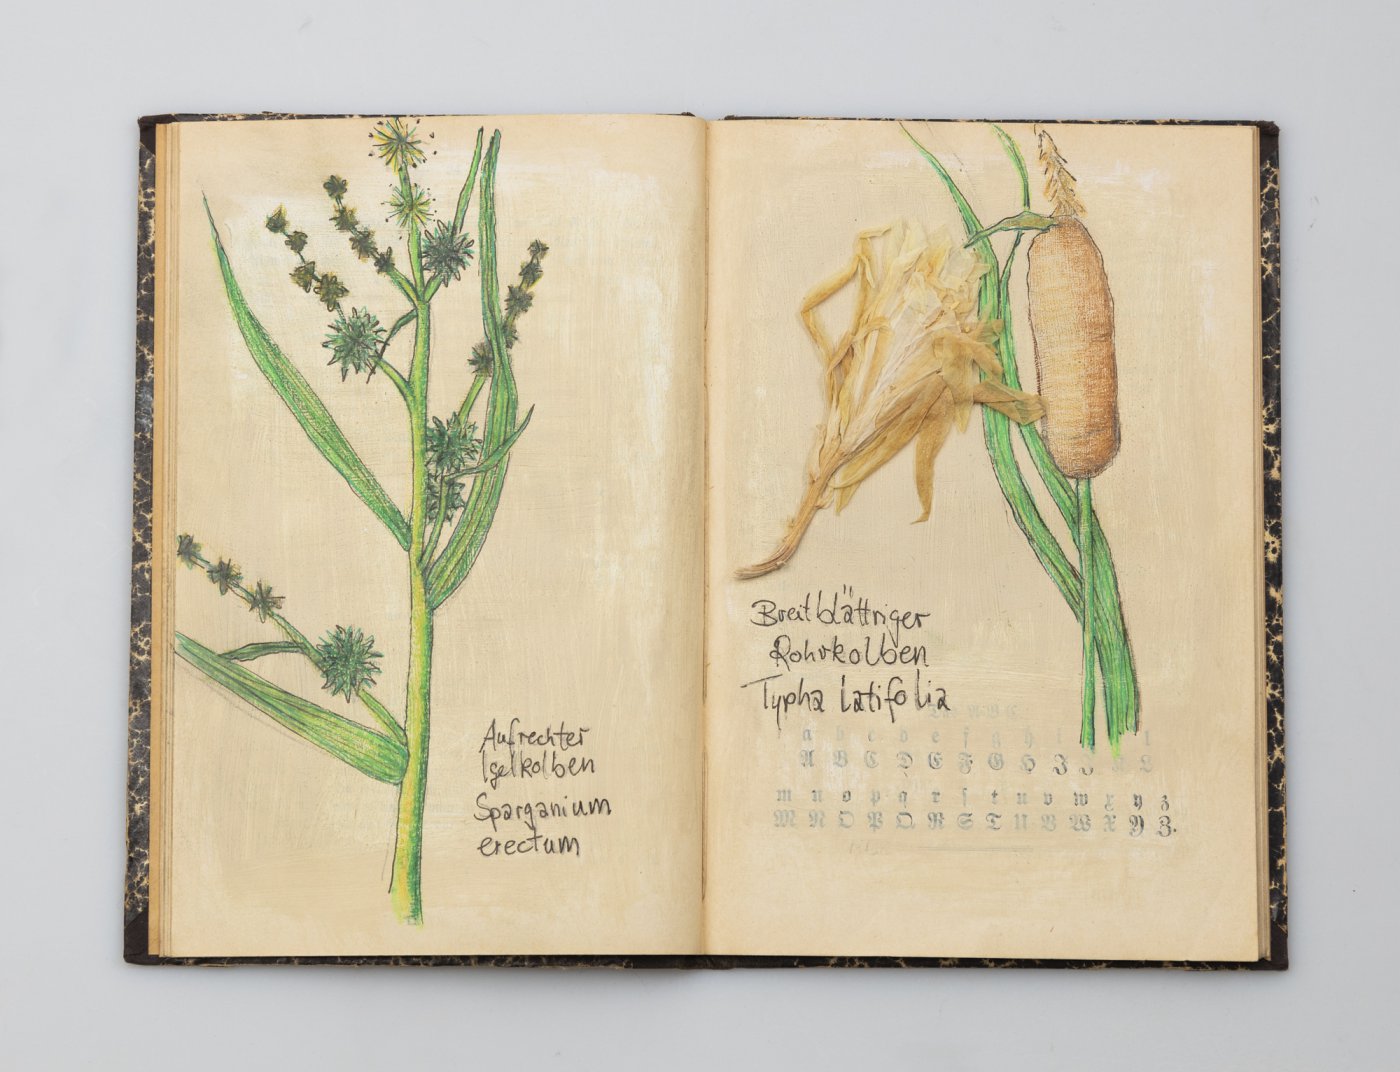 Aufrechter
Igelkolben
Sparganium
erectum
Breitblättriger
Rohrkolben
Typha latifolia
A B C
a b c d e f g h i l
A B C D E F G H I J K L
m n o p q r ſ t u v w x y z
M N O P Q R S T U V W X Y Z.